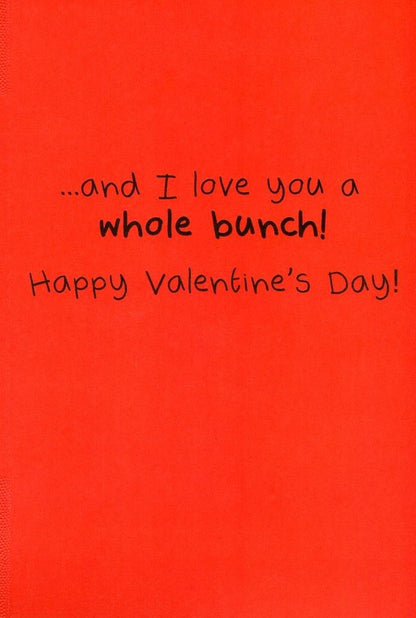 ...and I love you a
whole bunch!
Happy Valentine's Day!